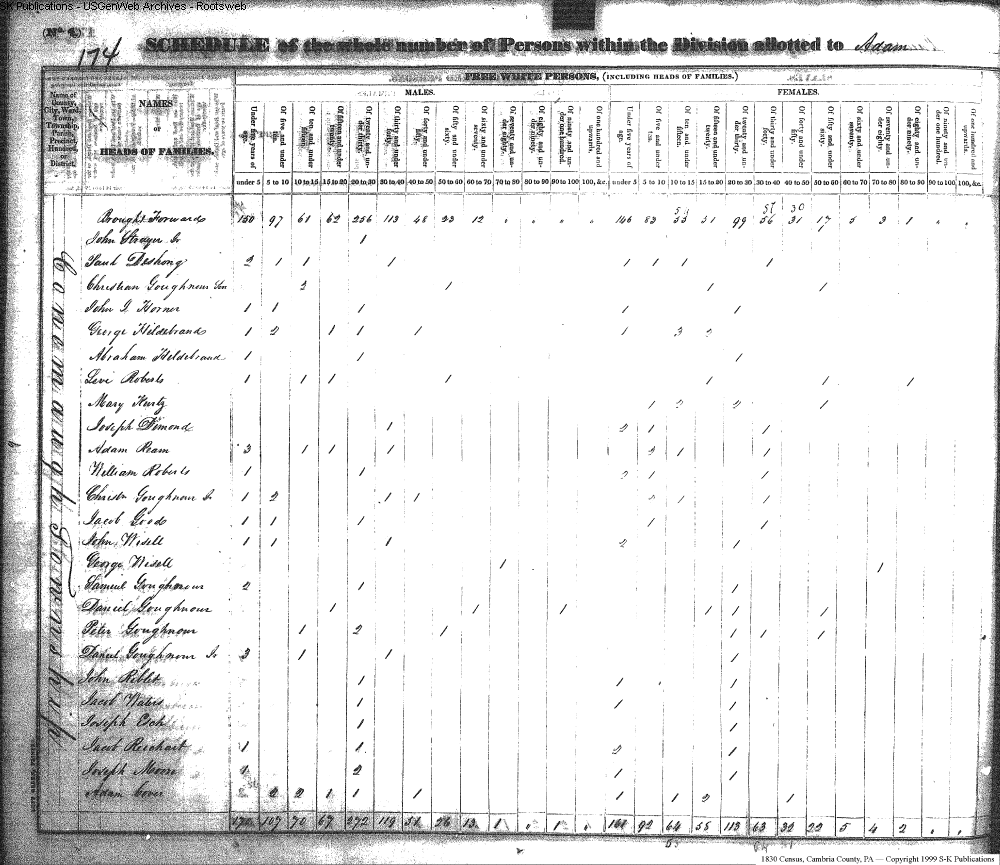 S-K Publications - USGenWeb Archives - Rootsweb
174
SCHEDULE of the whole number of Persons within the Division allotted to Adam
FREE WHITE PERSONS, (INCLUDING HEADS OF FAMILIES.)
Name of County, City, Ward, Town, Township, Parish, Precinct, Hundred, or District.
NAMES
OF
HEADS OF FAMILIES.
MALES.
FEMALES.
Under five years of age.
Of five and under ten.
Of ten and under fifteen.
Of fifteen and under twenty.
Of twenty and under thirty.
Of thirty and under forty.
Of forty and under fifty.
Of fifty and under sixty.
Of sixty and under seventy.
Of seventy and under eighty.
Of eighty and under ninety.
Of ninety and under one hundred.
Of one hundred and upwards.
Under five years of age.
Of five and under ten.
Of ten and under fifteen.
Of fifteen and under twenty.
Of twenty and under thirty.
Of thirty and under forty.
Of forty and under fifty.
Of fifty and under sixty.
Of sixty and under seventy.
Of seventy and under eighty.
Of eighty and under ninety.
Of ninety and under one hundred.
Of one hundred and upwards.
under 5 5 to 10 10 to 15 15 to 20 20 to 30 30 to 40 40 to 50 50 to 60 60 to 70 70 to 80 80 to 90 90 to 100 100, &c. under 5 5 to 10 10 to 15 15 to 20 20 to 30 30 to 40 40 to 50 50 to 60 60 to 70 70 to 80 80 to 90 90 to 100 100, &c.
Conemaugh Township
Brought Forwards 150 97 61 62 256 113 48 23 12 146 83 51 99 56 31 17 5 3 1
John Strayer Sr 1
Paul Deshong 2 1 1 1 1 1 1 1
Christian Goughnour Sen 2 1 1 1
John J Horner 1 1 1 1 1
George Hildebrand 1 2 1 1 1 1 3 2
Abraham Hildebrand 1 1 1
Levi Roberts 1 1 1 1 1 1 1
Mary Kurtz 1 2 2 1
Joseph Dimond 1 2 1 1
Adam Ream 3 1 1 1 2 1 1
William Roberts 1 1 2 1 1
Christn Goughnour Jr 1 2 1 1 1 1 1
Jacob Good 1 1 1 1 1
John Wisell 1 1 1 2 1
George Wisell 1 1
Samuel Goughnour 2 1 1
Daniel Goughnour 1 1 1 1 1 1
Peter Goughnour 1 2 1 1 1 1
Daniel Goughnour Jr 3 1 1 1
John Riblet 1 1 1
Jacob Waters 1 1 1
Joseph Esch 1 1
Jacob Reichart 1 1 2 1
Joseph Moore 1 2 1 1
Adam Cover 2 2 1 1 1 1 1 2 1
170 107 70 67 272 119 51 26 13 1 1 161 92 64 58 113 63 32 22 5 4 2
1830 Census, Cambria County, PA — Copyright 1999 S-K Publications